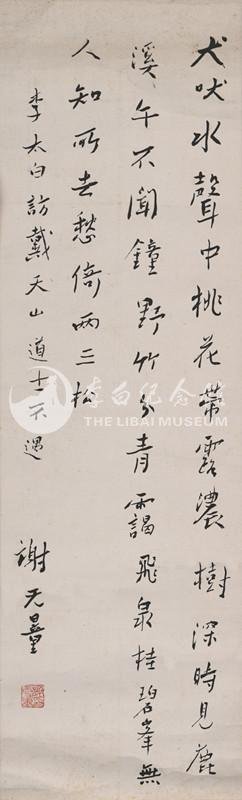 犬吠水聲中桃花帶露濃樹深時見鹿
溪午不聞鐘野竹分青靄飛泉挂碧峯無
人知所去愁倚兩三松
李太白訪戴天山道士不遇
謝无量
李白紀念館
THE LIBAI MUSEUM